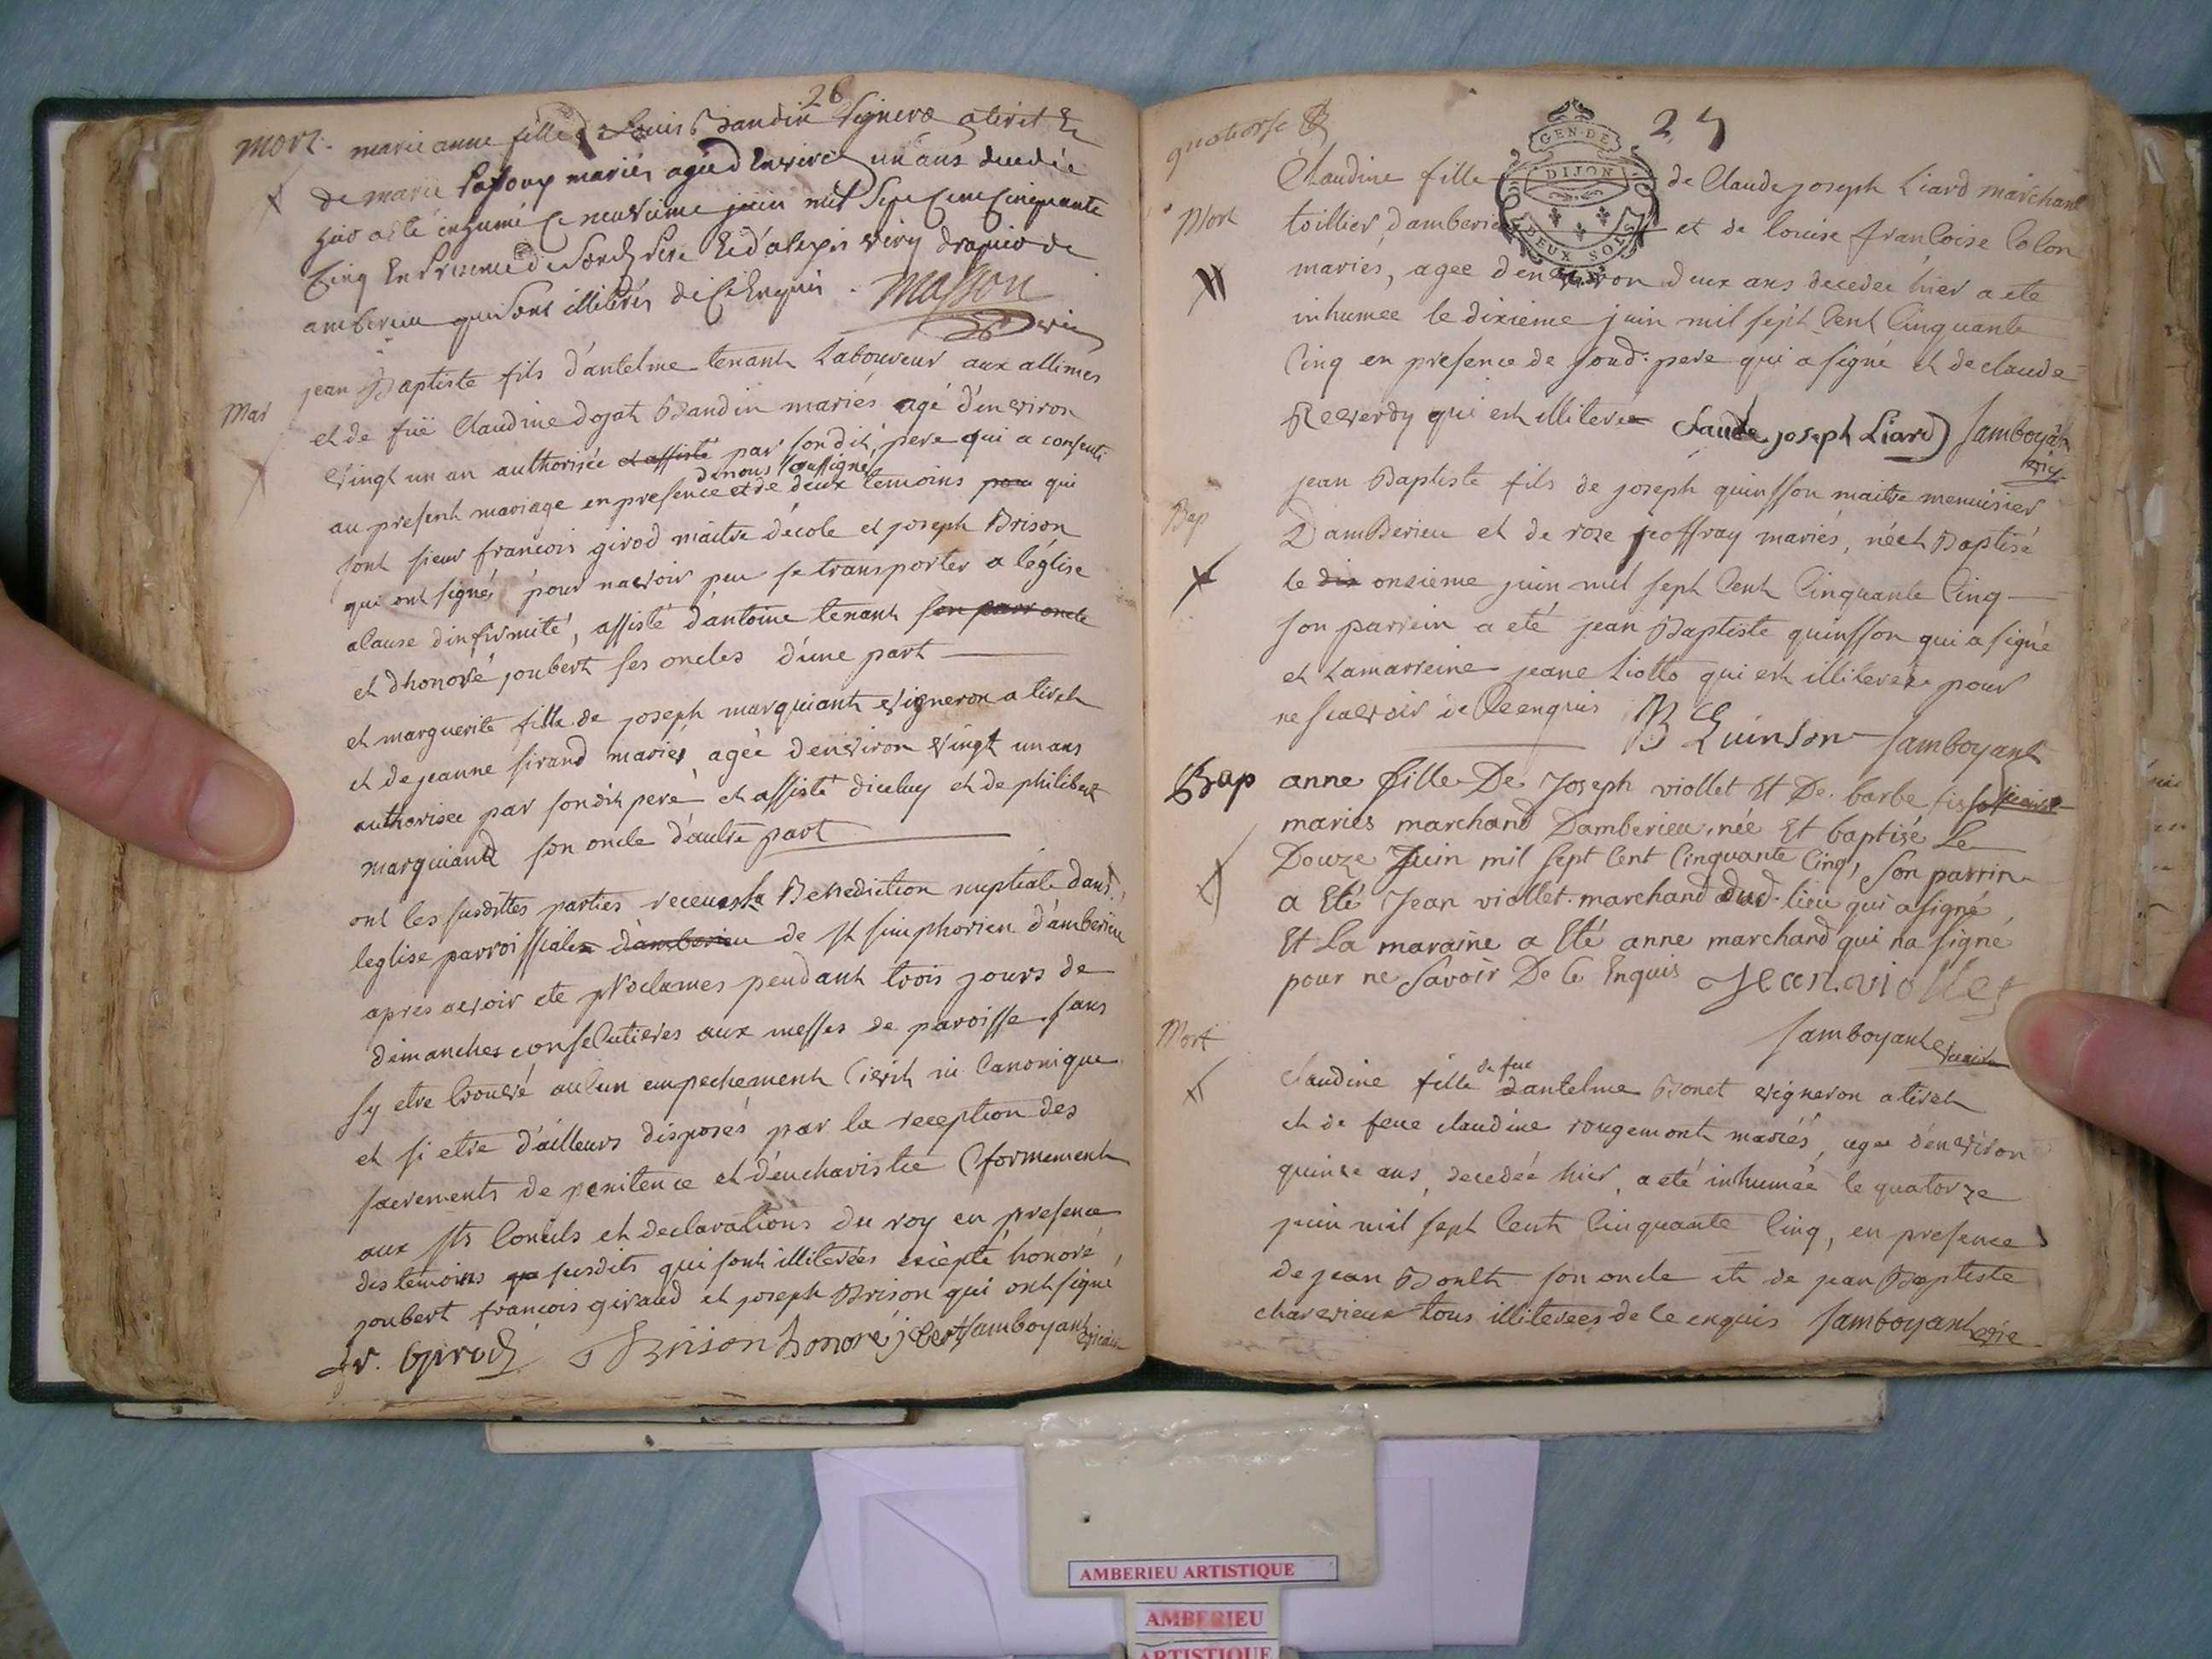 26
Mort. marie anne fille de Louis Baudin Vigneron a tiret Et
de marie mariés agée d'Environ un ans decedée
hier a été inhumé Ce neuvieme juin mil Sept Cent Cinquante
Cinq En Presence de Sond. Pere Et d'alexis very drapier de
amberieu qui sont illiterés de Ce Enquis . Masson
vic
Mar jean Baptiste fils d'antelme tenant Laboureur aux allimes
et de füe Claudine dojat Baudin mariés agé d'environ
vingt un an authorisée et assisté par sondit, pere qui a consenti
de nous soussigné
au present mariage en presence et de deux temoins pou qui
sont sieur francois girod maitre d'école et joseph Brison
qui ont signés pour navoir peu se transporter a léglise
a Cause dinfirmité, assisté d'antoine tenant son parr oncle
et dhonoré joubert ses oncles d'une part
et marguerite fille de joseph marquiant vigneron a tiret
et de jeanne sirand mariés agée denviron vingt un ans
authorisée par sondit pere et assisté diceluy et de philibert
marquiand son oncle d'aultre part
ont les susdittes parties receus la Benediction nuptiale dans
leglise parroissiale d'amberieu de st simphorien d'amberieu
apres avoir eté proclames pendant trois jours de
dimanches consecutives aux messes de paroisse sans
sy etre trouvé aucun empechement Civil ni Canonique
et si etre d'ailleurs disposés par la reception des
sacrements de penitence et d'eucharistie Cformement
aux sts Concils et declarations du roy en presence
des temoins qu susdits qui sont illiterées excepté honoré
joubert francois giraud et joseph Brison qui ont signé
fr. Girod JBrison honoré jbert Jamboyant vicaire
quatorse
27
GEN. DE
DIJON
DEUX SOLS
Claudine fille de Claude joseph Liard marchant
Mort toillier, d'amberieu et de louise francoise Colon
mariés, agée d'environ deux ans decedée hier a eté
inhumée le dixieme juin mil sept Cent Cinquante
Cinq en presence de sond. pere qui a signé et de claude
Reverdy qui est illiteré Claude joseph Liard Jamboyant
vic
Bap jean Baptiste fils de joseph quinsson maitre menuisier
DamBerieu et de roze jeoffray mariés, né et Baptisé
le dix onsieme juin mil sept Cent Cinquante Cinq
son parrein a eté jean Baptiste quinsson qui a signé
et La marreine jeane Liotto qui est illiterée pour
ne scavoir de Ce enquis B Quinson Jamboyant
Bap anne fille De Joseph viollet Et De barbe
mariés marchand Damberieu, née Et baptisé Le
Douze Juin mil sept Cent Cinquante Cinq, Son parrin
a Eté Jean viollet marchand dud. lieu qui a signé
Et La maraine a Eté anne marchand qui na signé
pour ne Savoir De Ce Enquis Jean viollet
Jamboyant vicaire
Mort
de feu
claudine fille dantelme Bonet vigneron a tiret
et de feue claudine rougemont mariés, agée d'environ
quinze ans, decedée hier, a eté inhumée le quatorze
juin mil sept Cent Cinquante Cinq, en presence
de jean Boult son oncle et de jean Baptiste
charvieux tous illiterées de Ce enquis Jamboyant vic
AMBERIEU ARTISTIQUE
AMBERIEU
ARTISTIQUE